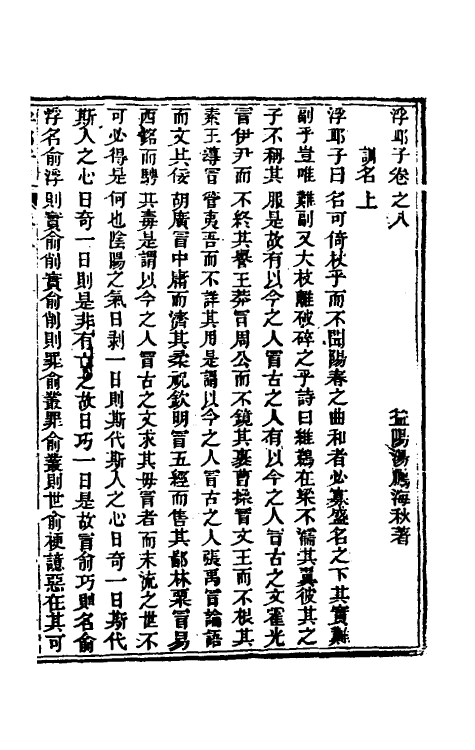 浮邱子卷之八
益陽湯鵬海秋著
訓名上
浮邱子曰名可倚杖乎而不聞陽春之曲和者必寡盛名之下其實難
副乎豈唯難副又大枝離破碎之乎詩曰維鵜在梁不濡其翼彼其之
子不稱其服是故有以今之人冒古之人有以今之人冒古之文霍光
冒伊尹而不終其譽王莽冒周公而不鏡其裏曹操冒文王而不根其
素王導冒管夷吾而不詳其用是謂以今之人冒古之人張禹冒論語
而文其佞胡廣冒中庸而濟其柔祝欽明冒五經而售其鄙林栗冒易
西銘而騁其毒是謂以今之人冒古之文求其毋冒者而末流之世不
可必得是何也陰陽之氣日剥一日則斯代斯人之心日奇一日斯代
斯人之心日奇一日則是非有亡之故日巧一日是故冒俞巧則名俞
浮名俞浮則實俞削實俞削則罪俞叢罪俞叢則世俞梗譩惡在其可